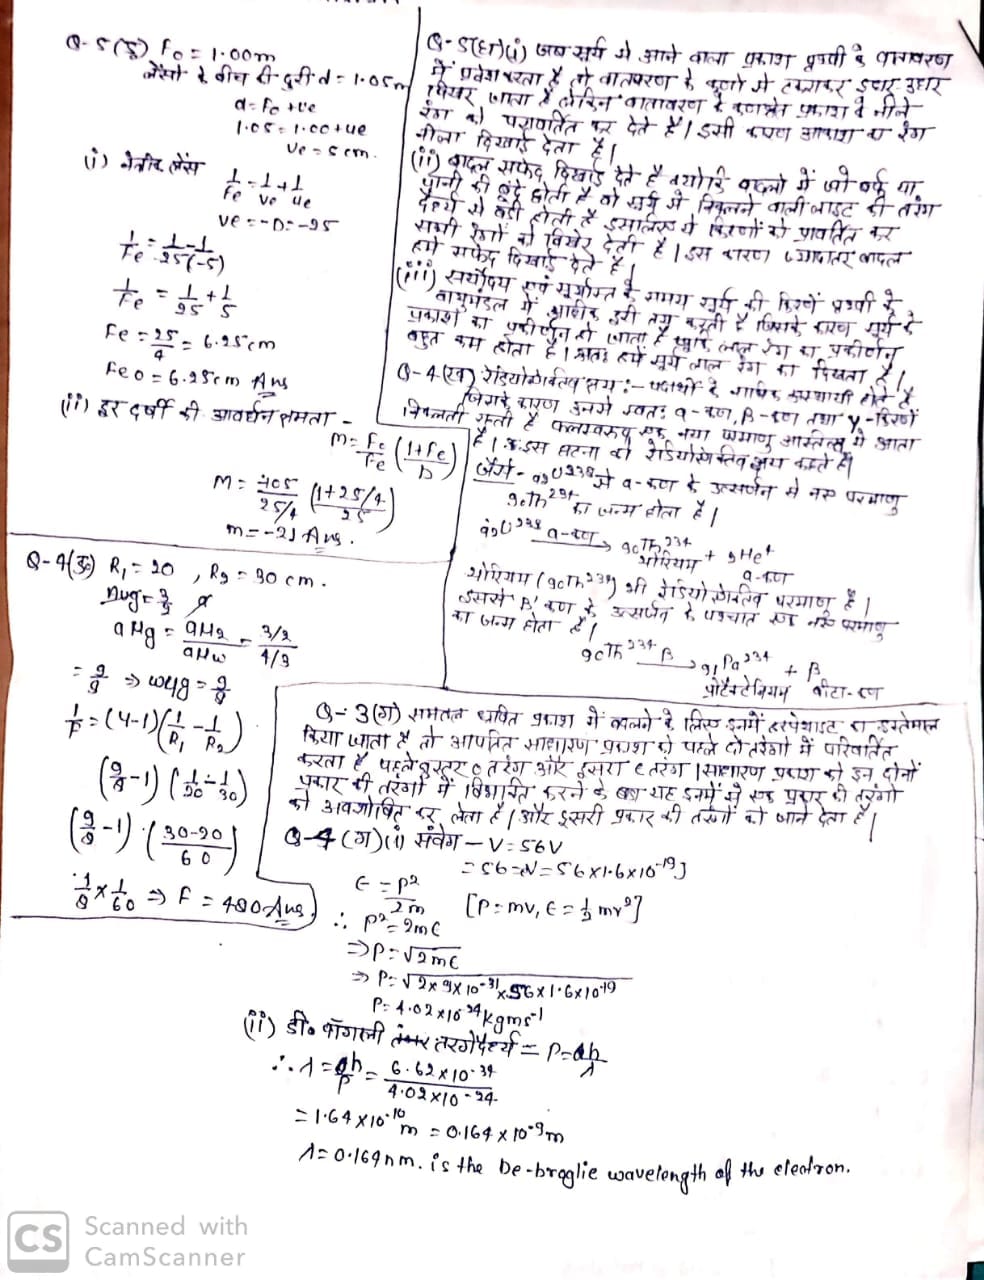 Q-5(ङ) Fo = 1.00m
लेंसो के बीच की दुरी d = 1.05m
d = Fo + ue
1.05 = 1.00 + ue
ue = 5cm.
(i) नेत्रीक लेंस
1/Fe = 1/ve + 1/ue
ve = -D = -25
1/Fe = 1/25 - 1/(-5)
1/Fe = 1/25 + 1/5
Fe = 25/4 = 6.25cm
Feo = 6.25cm Ans
(ii) दूर दर्शी की आवर्धन क्षमता -
m = Fo/Fe (1+Fe/D)
M = 105/25/4 (1+25/4/25)
m = -21 Ans.
Q-4(ङ) R1 = 20 , R2 = 30 cm.
aμg = aμg/aμw = 3/2/4/3
= 9/8 ⇒ wμg = 9/8
1/F = (μ-1)(1/R1 - 1/R2)
(9/8 -1) (1/20 - 1/30)
(9/8 -1) (30-20/60)
1/8 × 1/60 ⇒ F = 480 Ans
Q-5(i) जब सूर्य से आने वाला प्रकाश पृथ्वी के वातावरण
में प्रवेश करता है तो वातावरण के कणो से टकराकर इधर-उधर
बिखर जाता है लेकिन वातावरण के प्रकाश के नीले
रंग को परावर्तित कर देते है। इसी कारण आकाश का रंग
नीला दिखाई देता है।
(ii) बादल सफेद दिखाई देते है क्योकि बादलो में जो बर्फ या
पानी की बूंदे होती है वो सूर्य से निकलने वाली लाइट की तरंग
दैर्ध्य से बडी होती है इसलिए ये किरणों को परावर्तित कर
सभी रंगो को बिखेर देती है। इस कारण ज्यादातर बादल
हमे सफेद दिखाई देते है।
(iii) सूर्योदय एवं सूर्यास्त के समय सूर्य की किरणें पृथ्वी के
वायुमंडल में अधिक दूरी तय करती है जिसके कारण सूर्य के
प्रकाश का प्रकीर्णन हो जाता है लाल रंग का प्रकीर्णन
बहुत कम होता है। अतः हमें सूर्य लाल रंग का दिखता है।
Q-4(ख) रेडियोऐक्टिव क्षय :- पदार्थो के नाभिक अस्थायी होते है
जिसके कारण उनसे स्वतः α-कण, β-कण तथा γ-किरणें
निकलती रहती है फलस्वरूप एक नया परमाणु अस्तित्व में आता
है। इस घटना को रेडियोऐक्टिव क्षय कहते है
जैसे- 92U238 से α-कण के उत्सर्जन से नए परमाणु
90Th234 का जन्म होता है।
92U238 α-कण → 90Th234 + 2He4
थोरियम α-कण
थोरियम (90Th234) भी रेडियोऐक्टिव परमाणु है।
इससे 'β' कण के उत्सर्जन के पश्चात एक नए परमाणु
का जन्म होता है।
90Th234 β → 91Pa234 + β
प्रोटैक्टेनियम बीटा-कण
Q-3(ग) समतल ध्रुवित प्रकाश में बदलने के लिए इनमें टरपेथाइट का इस्तेमाल
किया जाता है तो आपतित साधारण प्रकाश को पहले दो तरंगो में परिवर्तित
करता है पहले o तरंग और दूसरा e तरंग। साधारण प्रकाश को इन दोनों
प्रकार की तरंगों में विभाजित करने के बाद यह इनमें से एक प्रकार की तरंगो
को अवशोषित कर लेता है। और दूसरी प्रकार की तरंगों को जाने देता है।
Q-4 (ग)(i) संवेग - V = 56V
= 56eV = 56×1.6×10-19J
E = p2/2m [P = mv, E = 1/2 mv2]
∴ p2 = 2mE
⇒ P = √2mE
⇒ P = √2×9×10-31×56×1.6×10-19
P = 4.02×10-24 kgms-1
(ii) डी० बॉगली तरंगदैर्ध्य = P = h/λ
∴ λ = h/P = 6.62×10-34/4.02×10-24
= 1.64×10-10 m = 0.164×10-9m
λ = 0.164nm. is the De-broglie wavelength of the electron.
CS Scanned with
CamScanner